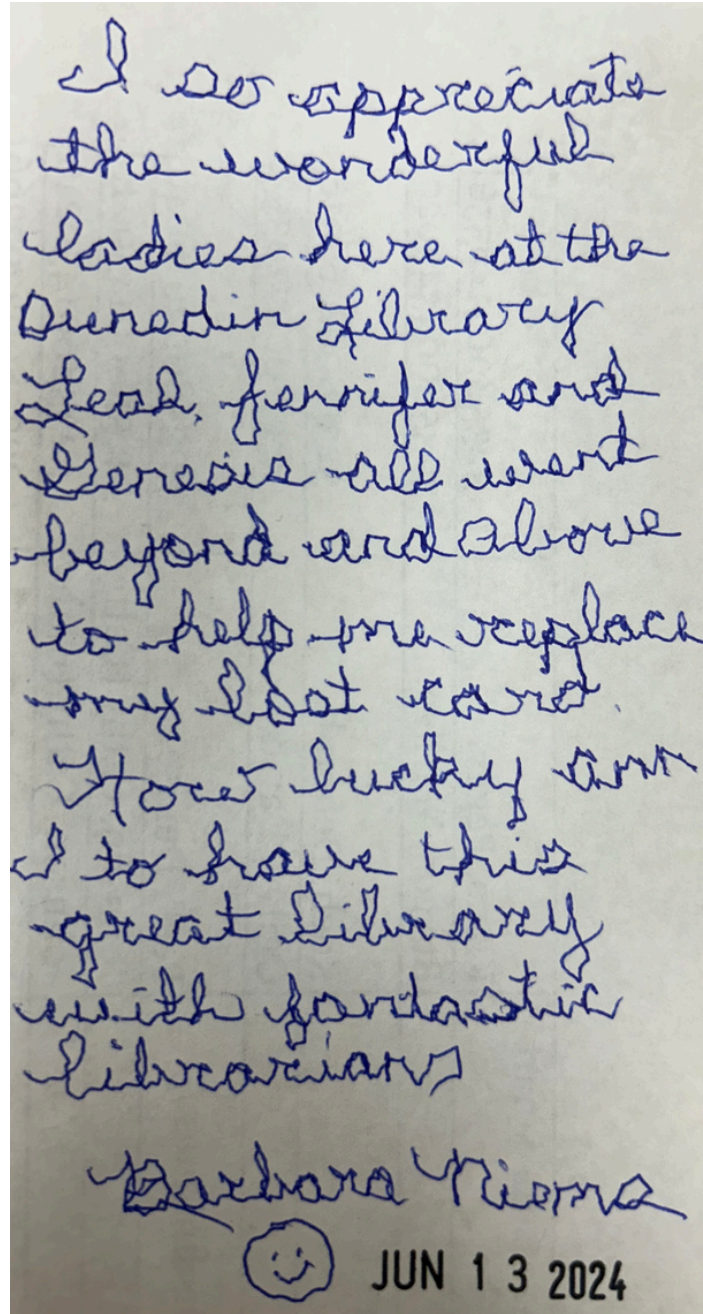 I so appreciate
the wonderful
ladies here at the
Dunedin Library
Leah, Jennifer and
Genesis all went
beyond and above
to help me replace
my lost card.
How lucky am
I to have this
great library
with fantastic
librarians
Barbara
JUN 13 2024